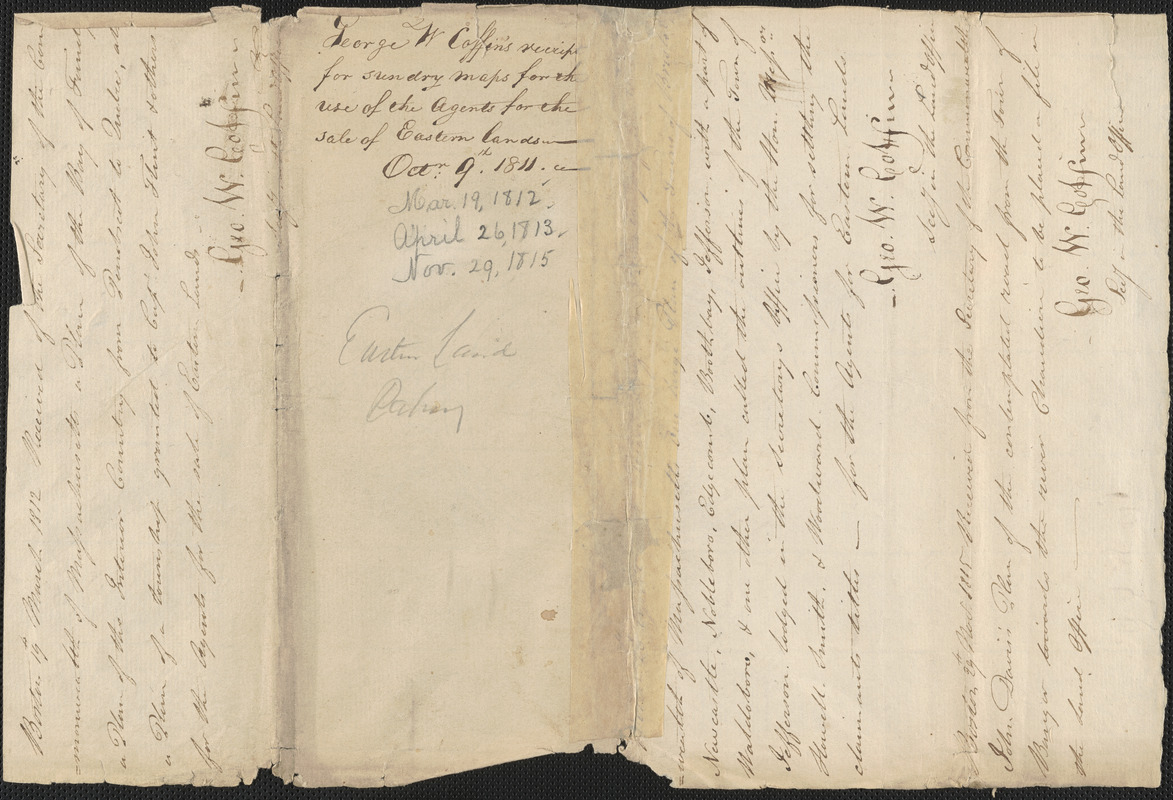 Boston 19th March 1812 Received of the Secretary of the Com
-monwealth of Massachusetts a Plan of the Bay of Fund
a Plan of the Interior Country from Penobscot to Quebec, als
a Plan of a township granted to Capt John Flint & others
for the Agents for the sale of Eastern Lands
— Geo. W. Coffin —
George W Coffin's receipt
for sundry maps for the
use of the Agents for the
sale of Eastern lands —
Octr 9th 1811.
Mar. 19, 1812.
April 26, 1813.
Nov. 29, 1815
Eastern Land
-wealth of Massachusetts
Newcastle, Nobleboro, Edgecomb, Boothbay, Jefferson, with a part of
Waldoboro, & one other plan called the outlines of the Town of
Jefferson lodged in the Secretarys Office by the Hon. Messrs
Howell. Smith. & Woodward. Commissioners for settling the
claimants titles — for the Agents for Eastern Lands
— Geo. W. Coffin —
Secy in the Land Office
Boston, 29th Novr 1815 Received from the Secretary of the Commonwealth
John Davis' Plan of the contemplated road from the Town of
Bangor towards the river Chaudiere to be placed on file in
the Land Office —
Geo W. Coffin
Secy in the Land Office